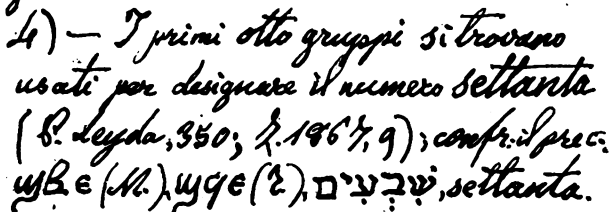 4) — I primi otto gruppi si trovano
usati per designare il numero settanta
(P. Leyda, 350; Z. 1867, 9); confr. il prec.
ϣⲃⲉ (M.), ϣϥⲉ (T.), שִׁבְעִים, settanta.